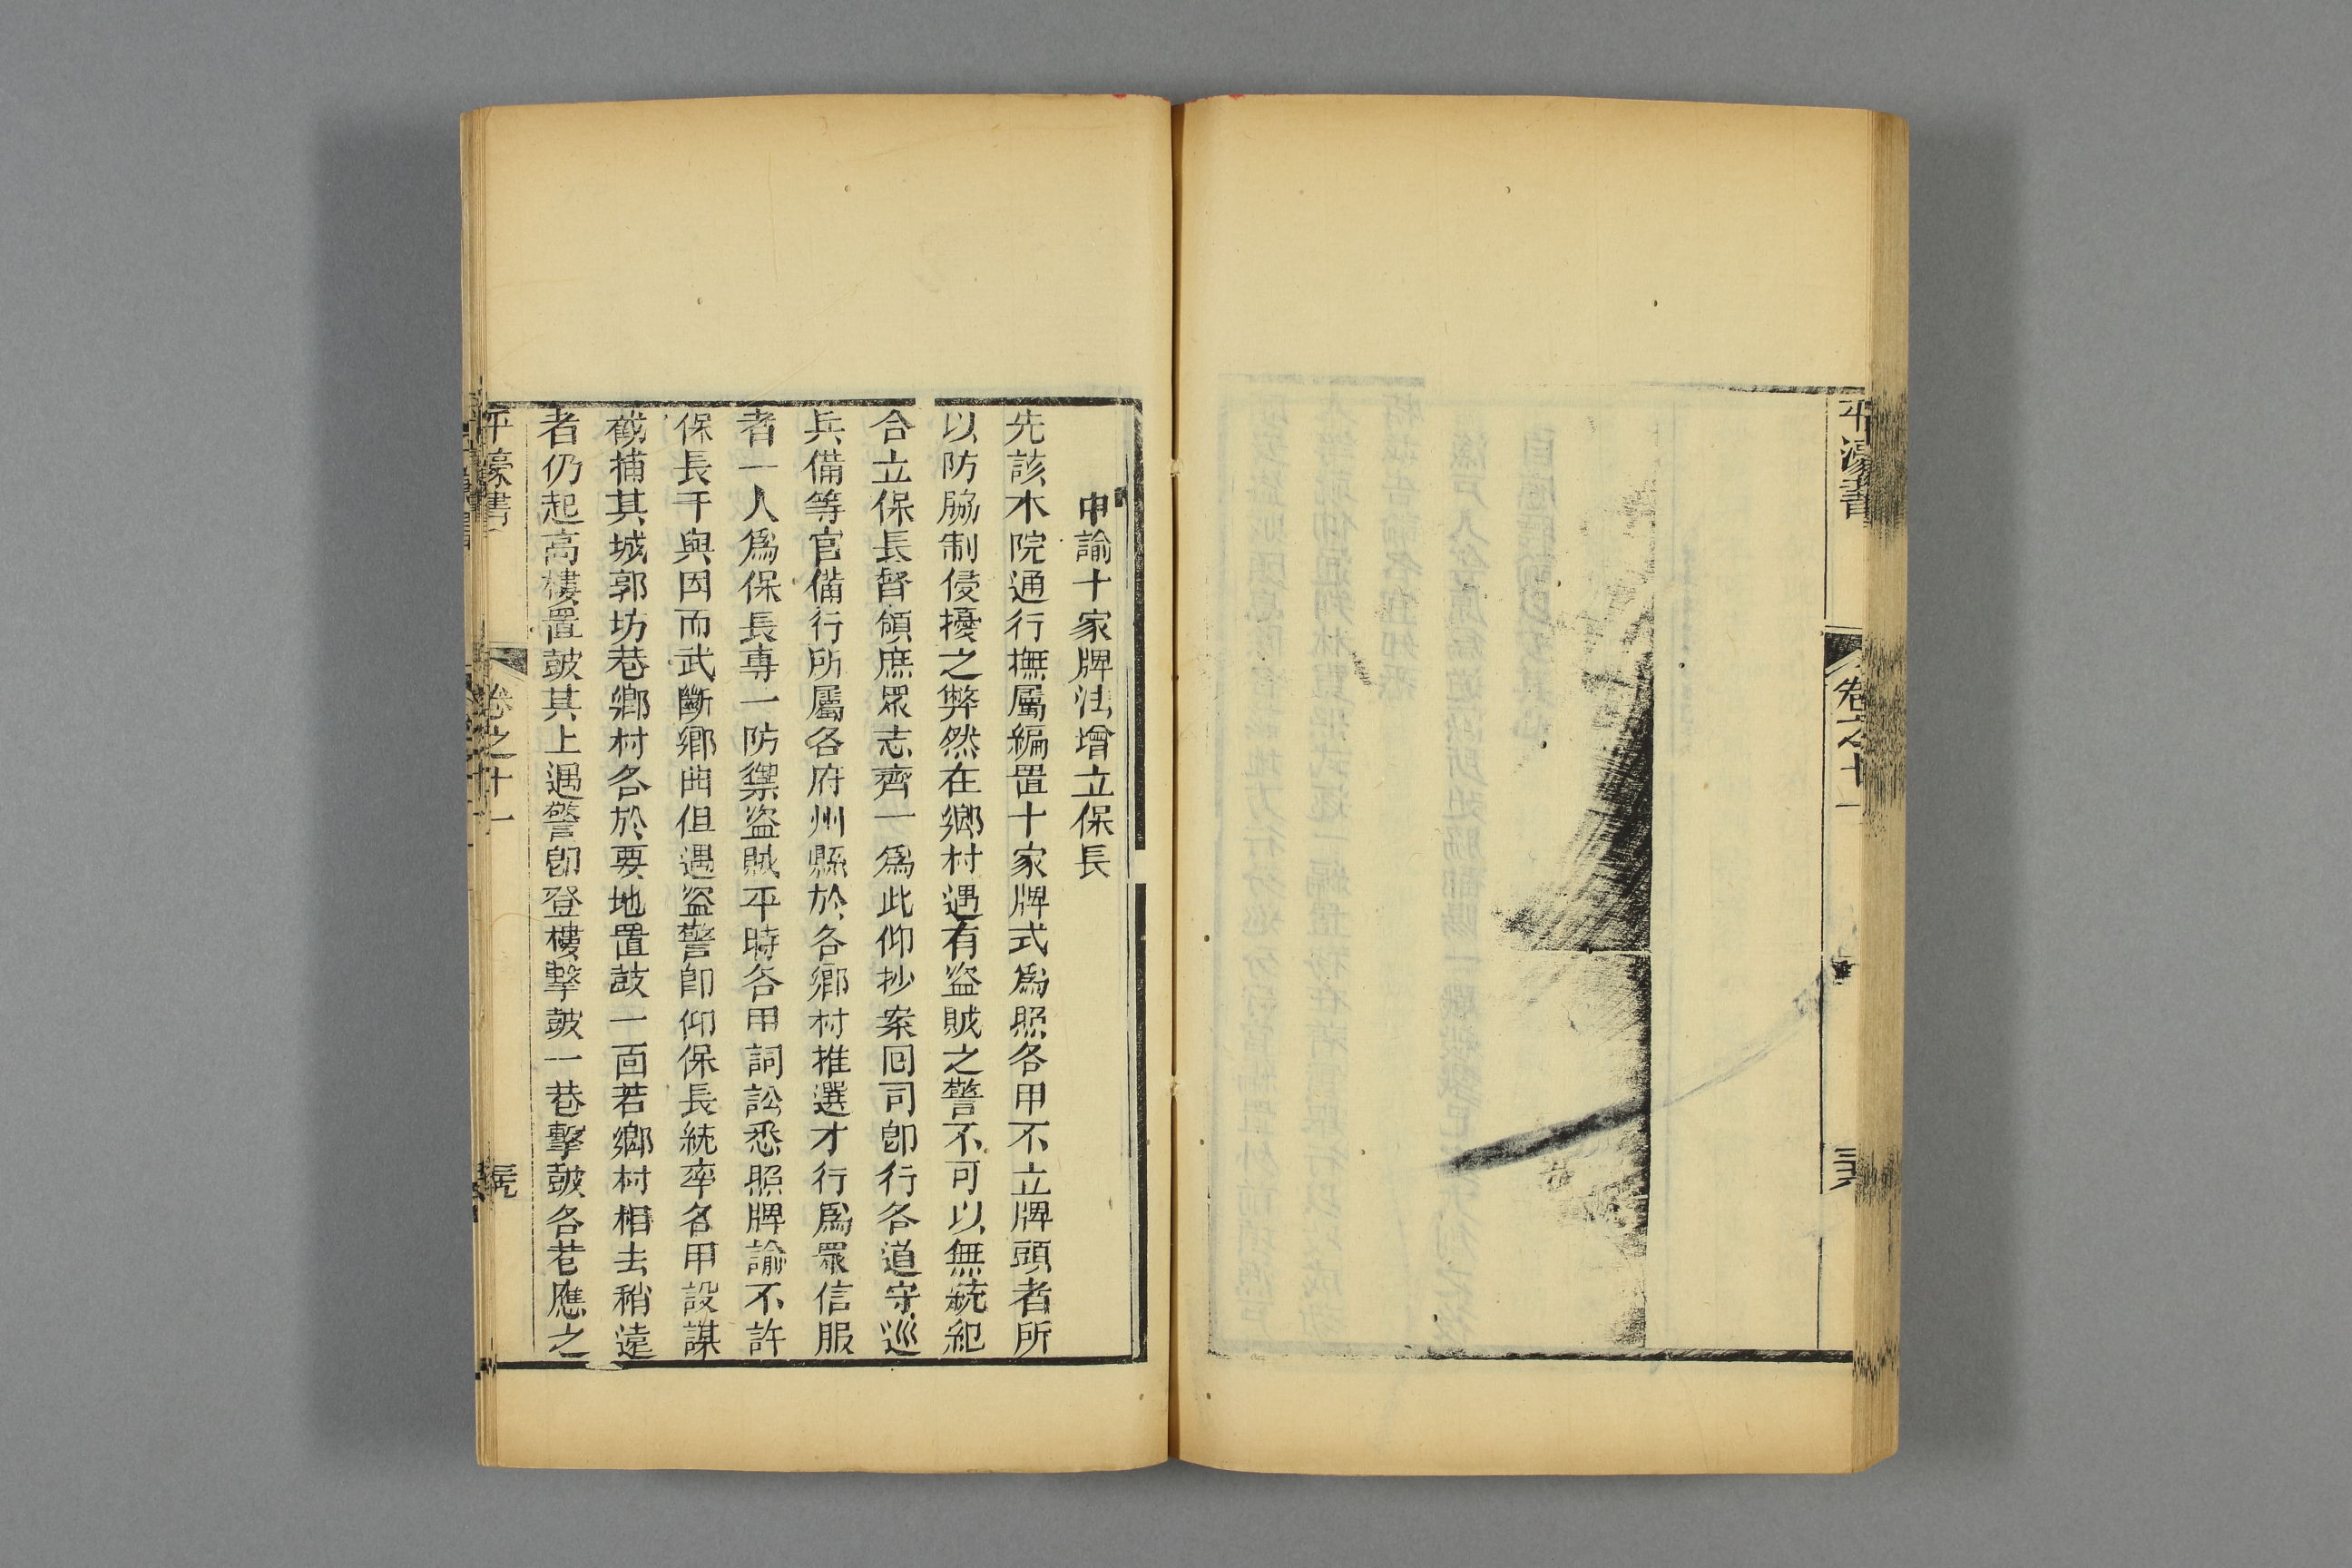 平濠書
卷之十一
三六
申諭十家牌法增立保長
先該本院通行撫屬編置十家牌式爲照各甲不立牌頭者所
以防脇制侵擾之弊然在鄉村遇有盜賊之警不可以無統紀
合立保長督領庶眾志齊一爲此仰抄案囘司卽行各道守巡
兵備等官備行所屬各府州縣於各鄉村推選才行爲眾信服
者一人爲保長專一防禦盜賊平時各甲詞訟悉照牌諭不許
保長干與因而武斷鄉曲但遇盜警卽仰保長統率各甲設謀
截捕其城郭坊巷鄉村各於要地置鼓一面若鄉村相去稍遠
者仍起高樓置皷其上遇警卽登樓擊皷一巷擊皷各巷應之
平濠書
卷之十一